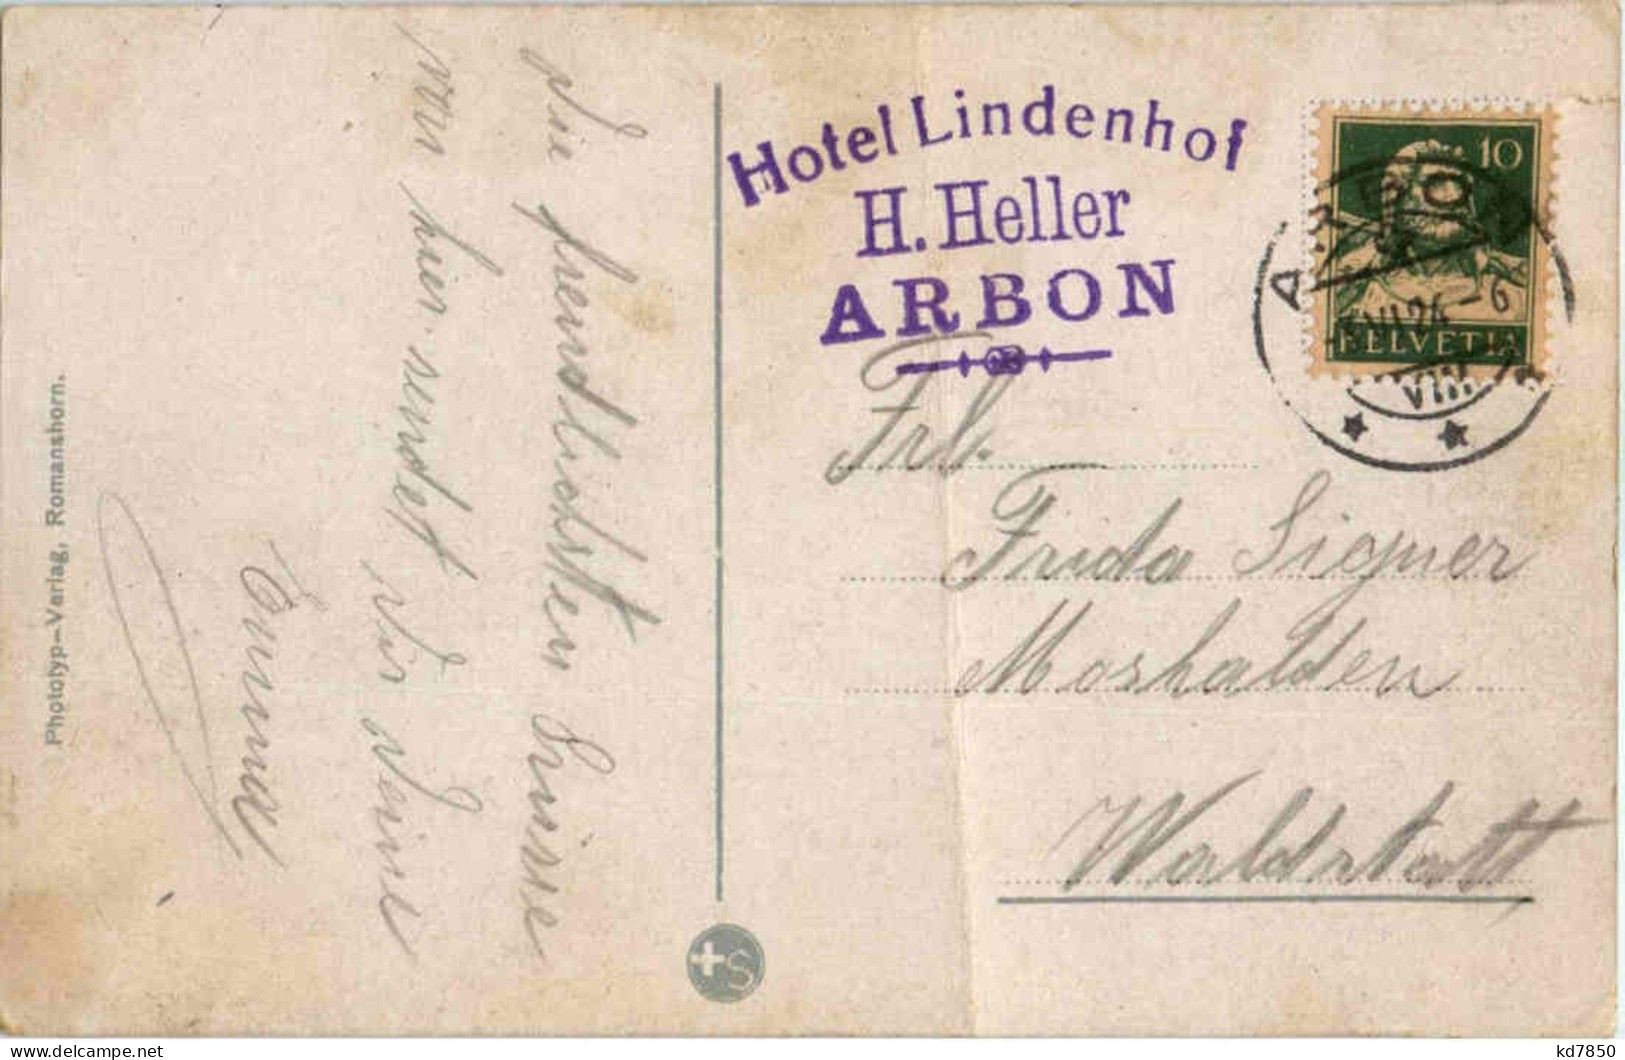 Die freundlichsten Grüsse
von hier sendet Dir Deine
Emma
Phototyp-Verlag, Romanshorn.
Hotel Lindenhof
H. Heller
ARBON
10
HELVETIA
ARBON
VI 24 - 6
VIII
Frl.
Frida Signer
Moshalden
Waldstatt
S
delcampe.net
kd7850